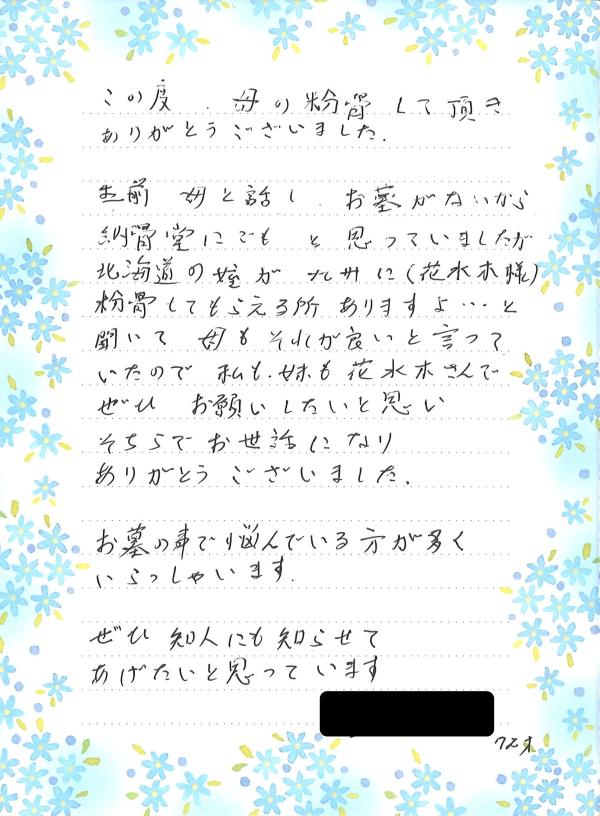 この度、母の粉骨して頂き
ありがとうございました.
生前 母と話し、お墓がないから
納骨堂にでも と 思っていましたが
北海道の姪が 九州に(花水木様)
粉骨してもらえる所 ありますよ…と
聞いて 母も それが良いと言って
いたので 私も、妹も 花水木さんで
ぜひ お願いしたいと思い
そちらでお世話になり
ありがとう ございました.
お墓の事で悩んでいる方が多く
いらっしゃいます.
ぜひ 知人にも知らせて
あげたいと思って います
72才